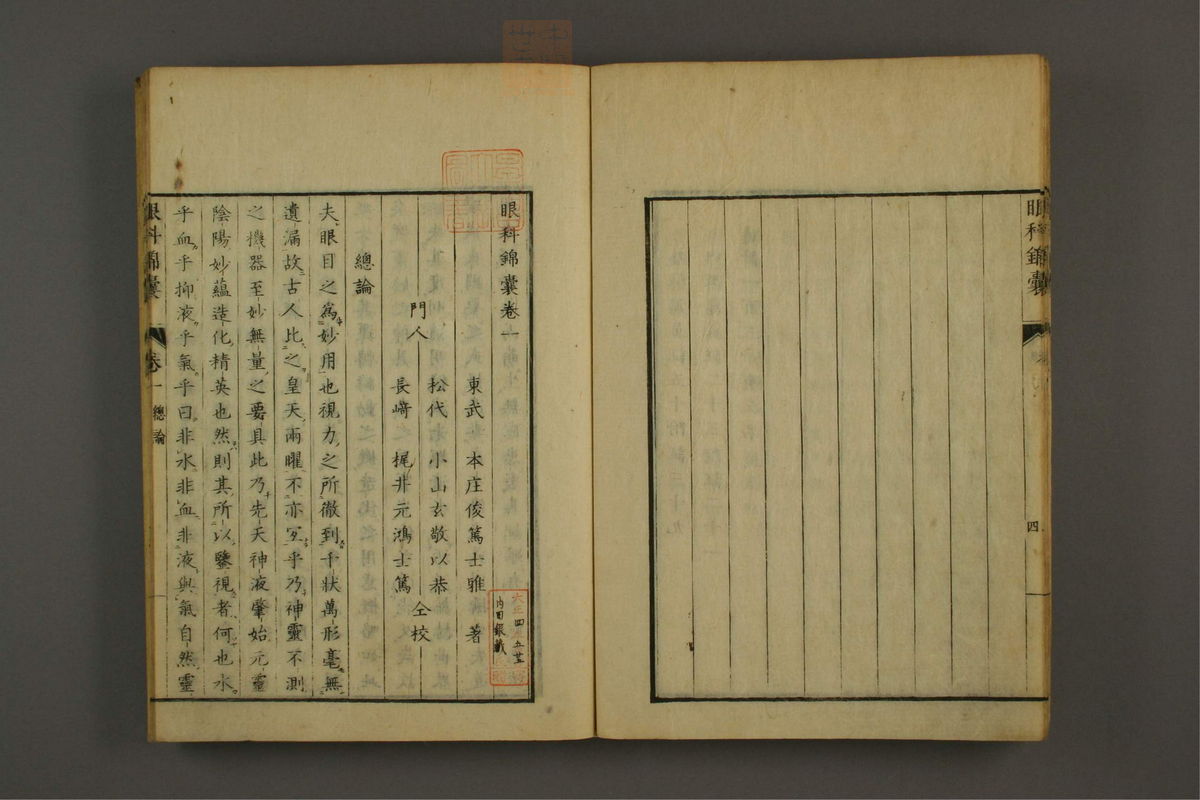 眼科錦囊
四
眼科錦囊卷一
東武 本庄俊篤士雅 著
門人
松代 小山玄敬以恭
長﨑 梶井元鴻士篤
仝校
總論
夫眼目之爲妙用也視力之所徹到千狀萬形毫無
遺漏故古人比之皇天兩曜不亦宜乎乃神靈不測
之機器至妙無量之要具此乃先天神液肇始元靈
陰陽妙蘊造化精英也然則其所以鑒視者何也水
乎血乎抑液乎氣乎曰非水非血非液與氣自然靈
眼科錦囊
卷一
總論
大正四